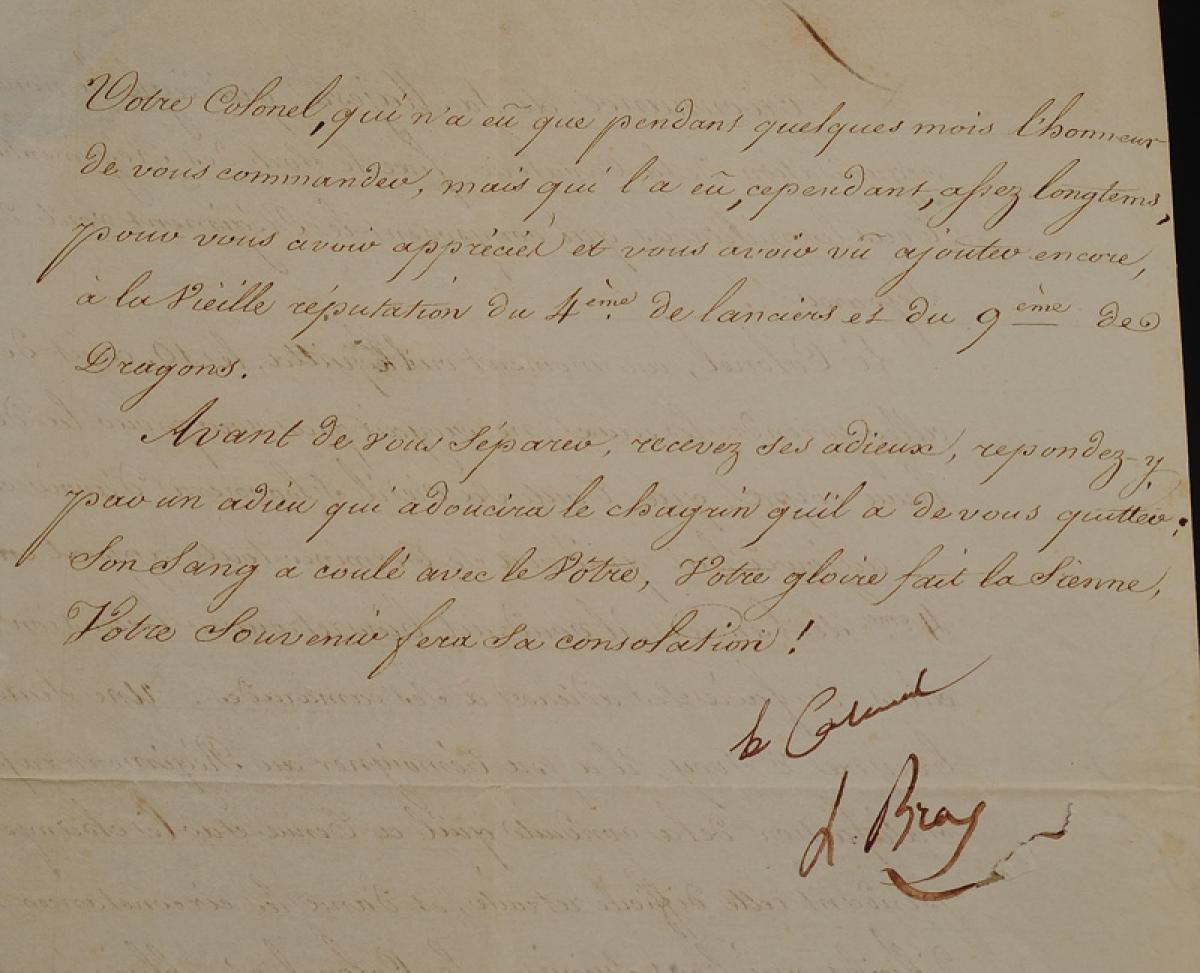 Votre Colonel, qui n'a eû que pendant quelques mois l'honneur
de vous commander, mais qui l'a eû, cependant, assez longtems,
pour vous avoir appréciés et vous avoir vû ajouter encore,
à la Vieille réputation du 4ème de lanciers et du 9ème de
Dragons.
Avant de vous séparer, recevez ses adieux, repondez-y
par un adieu qui adoucira le chagrin qu'il a de vous quitter:
Son Sang a coulé avec le Vôtre, Votre gloire fait la Sienne,
Votre Souvenir fera sa consolation!
le Colonel